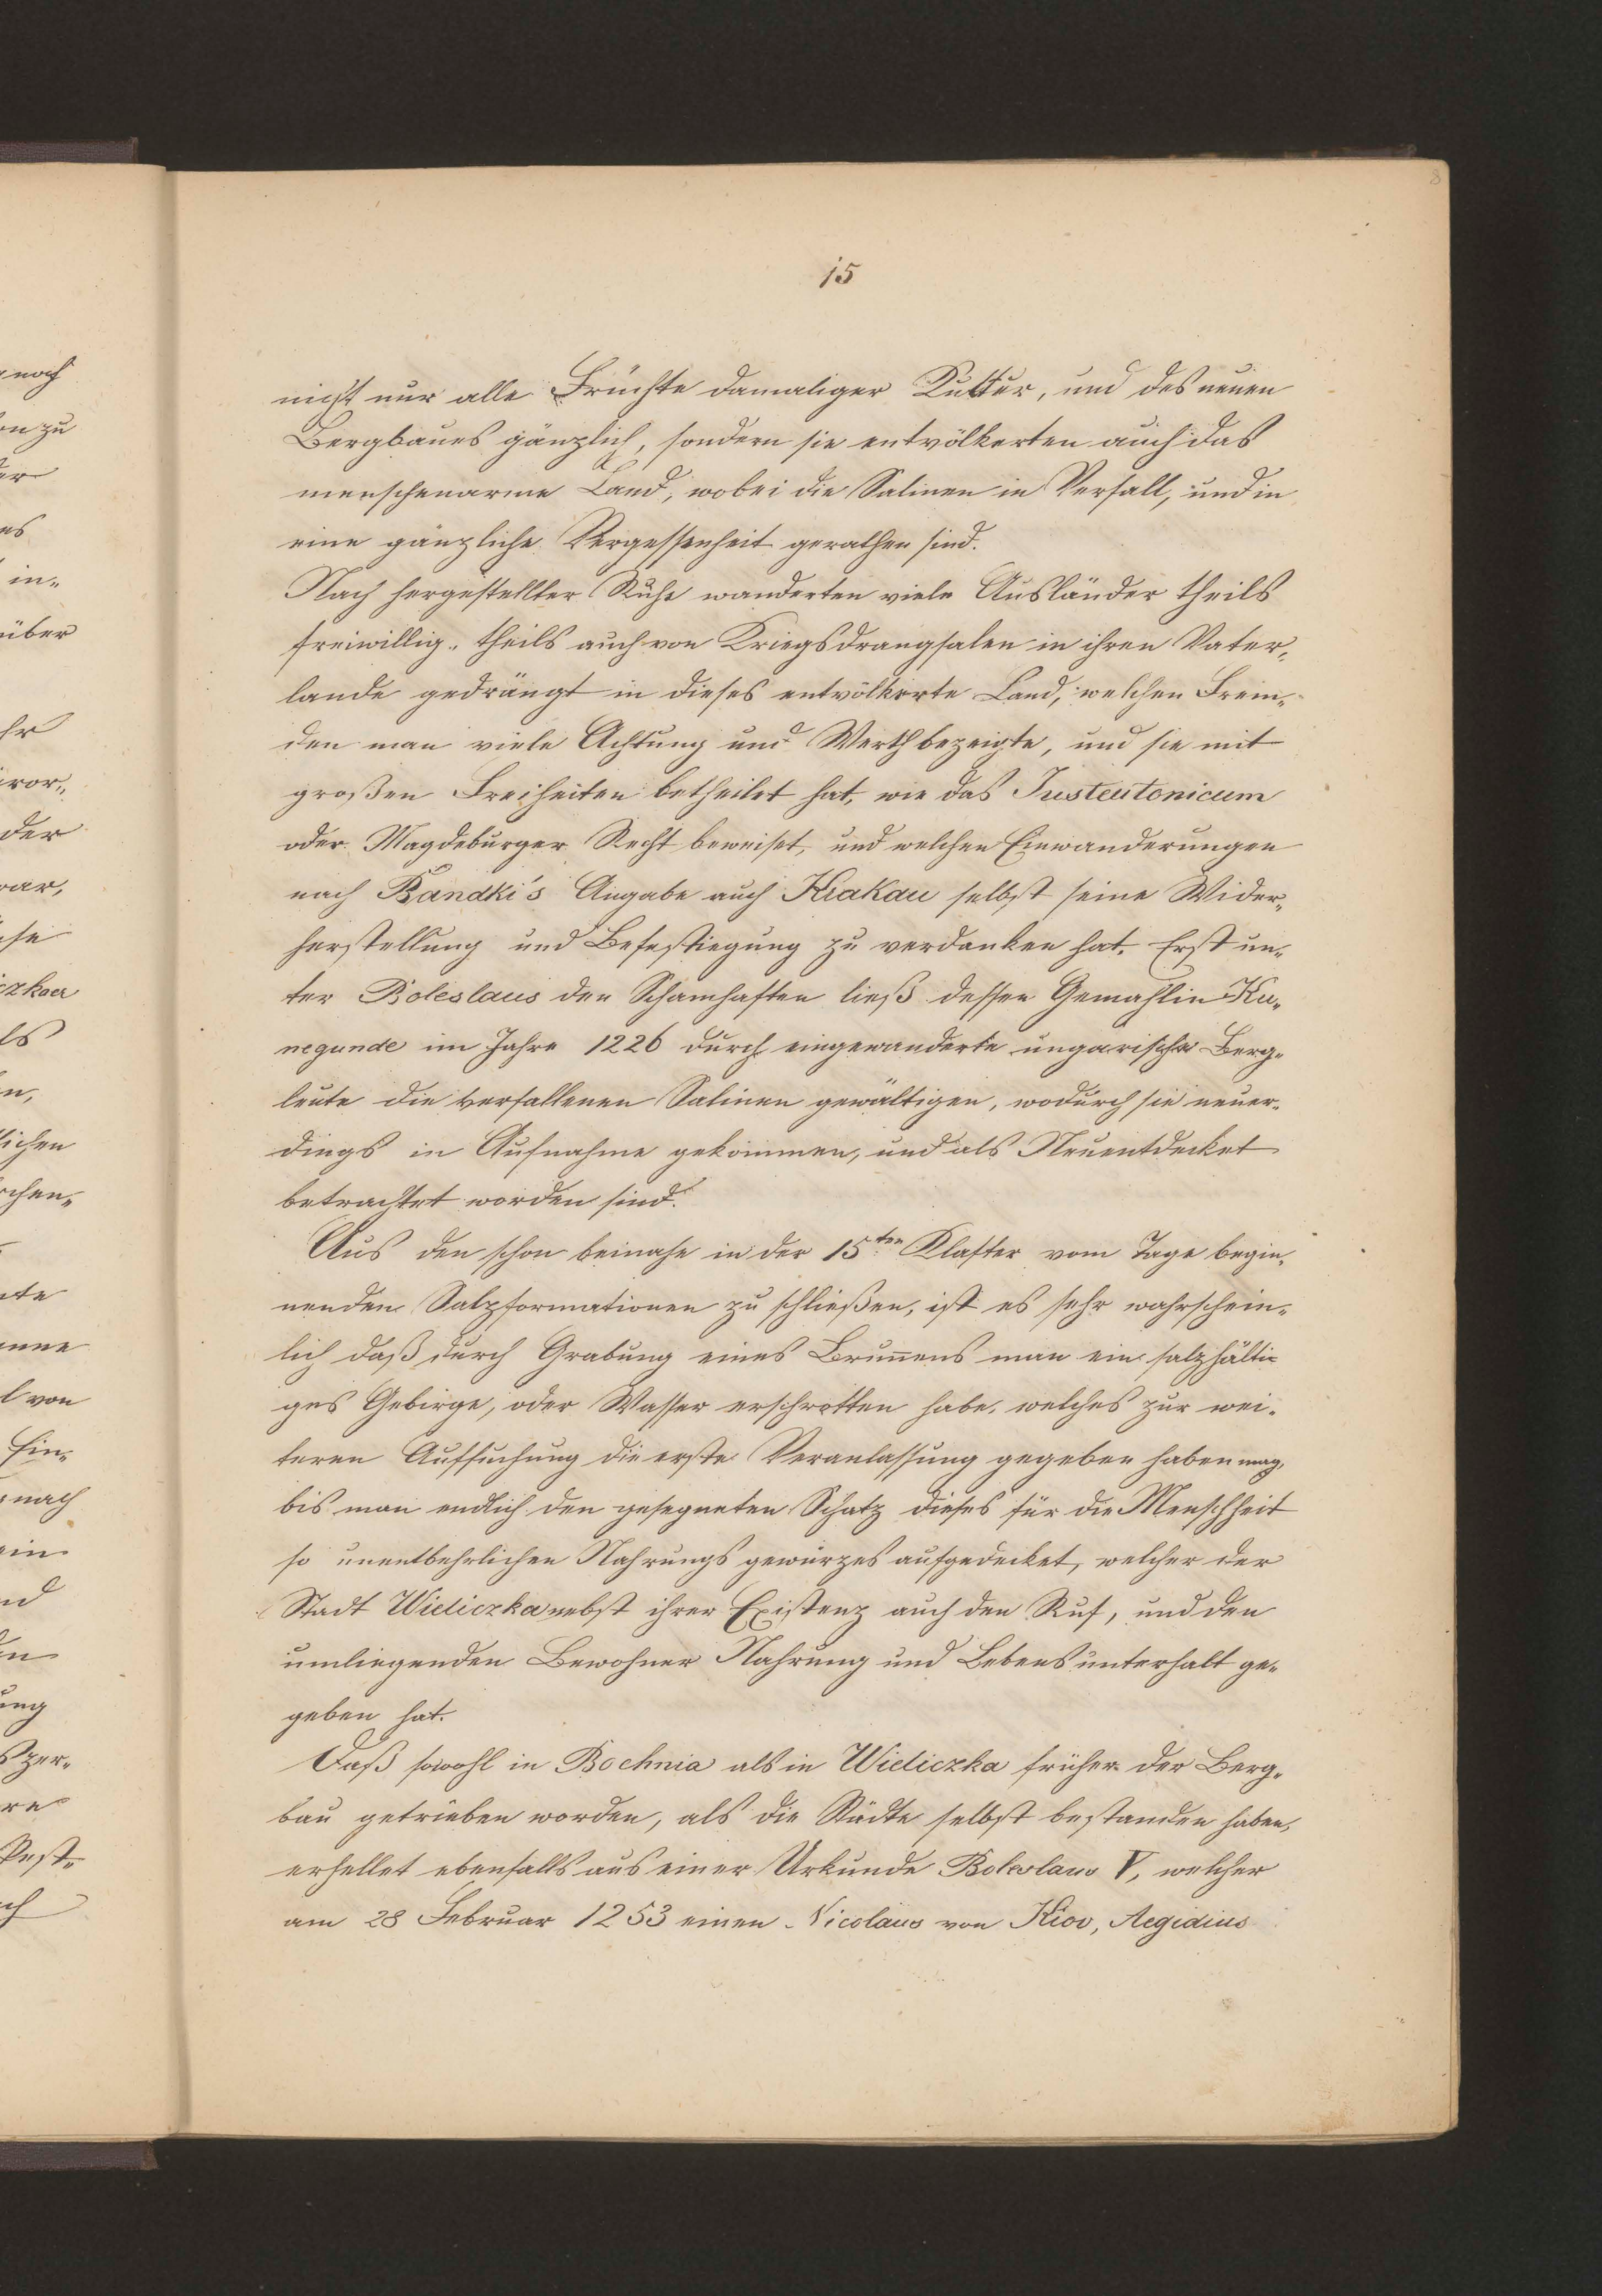 15
nicht nur alle Früchte damaliger Kultur, und des neuen
Bergbaues gänzlich, sondern sie entvölkerten auch das
menschenarme Land, wobei die Salinen in Verfall, und in
eine gänzliche Vergessenheit gerathen sind.
Nach hergestellter Ruhe wanderten viele Ausländer theils
freiwillig, theils auch von Kriegsdrangsalen in ihren Vater-
lande gedrängt in dieses entvölkerte Land, welchen Frem-
den man viele Achtung und Werth bezeigte, und sie mit
großen Freiheiten betheilet hat, wie das Justeutonicum
oder Magdeburger Recht beweiset, und welchen Einwanderungen
nach Bandki's Angabe auch Krakau selbst seine Wider-
herstellung und Befestiegung zu verdanken hat. Erst un-
ter Boleslaus den Schamhaften ließ dessen Gemahlin Ku-
negunde im Jahre 1226 durch eingewanderte ungarische Berg-
leute die verfallenen Salinen gewältigen, wodurch sie neuer-
dings in Aufnahme gekommen, und als Neuentdecket
betrachtet worden sind.
Aus den schon beinahe in der 15ten Klafter vom Tage begin-
nenden Salzformationen zu schließen, ist es sehr wahrschein-
lich daß durch Grabung eines Brunnens man ein salzhälti-
ges Gebirge, oder Wasser erschrotten habe, welches zur wei-
teren Aufsuchung die erste Veranlassung gegeben haben mag,
bis man endlich den gesegneten Schatz dieses für die Menschheit
so unentbehrlichen Nahrungs gewürzes aufgedecket, welcher der
Stadt Wieliczka nebst ihrer Existenz auch den Ruf, und den
umliegenden Bewohner Nahrung und Lebensunterhalt ge-
geben hat.
Daß sowohl in Bochnia als in Wieliczka früher der Berg-
bau getrieben worden, als die Städte selbst bestanden haben,
erhellet ebenfalls aus einer Urkunde Boleslaus V, welcher
am 28 Februar 1253 einen Nicolaus von Kiov, Aegidius